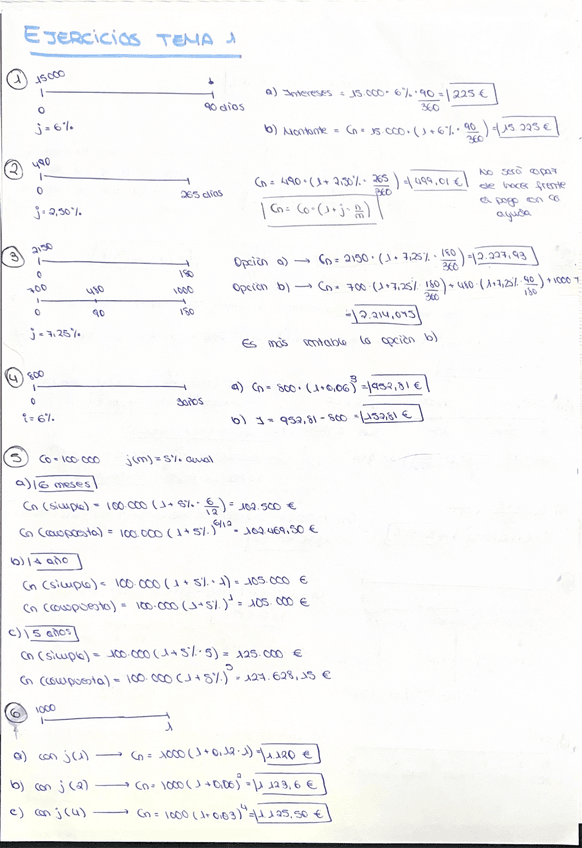 EJERCICIOS TEMA 1
1 15000
0 90 dias
j = 6%
a) Intereses = 15.000 · 6% · 90/360 = 225 €
b) Montante = Cn = 15.000 · (1 + 6% · 90/360) = 15.225 €
2 490
0 265 dias
j = 2,50%
Cn = 490 · (1 + 2,50% · 265/360) = 499,01 €
Cn = Co · (1 + j · n/m)
No será capaz
de hacer frente
al pago con
ayuda
3 2150
0 180
700 480 1000
0 90 180
j = 7,25%
Opción a) → Cn = 2150 · (1 + 7,25% · 180/360) = 2.227,93
Opción b) → Cn = 700 · (1 + 7,25% · 180/360) + 480 · (1 + 7,25% · 90/180) + 1000
= 2.214,075
Es más rentable la opción b)
4 800
0 3años
i = 6%
a) Cn = 800 · (1 + 0,06)³ = 952,81 €
b) I = 952,81 - 800 = 152,81 €
5 Co = 100.000 j(m) = 5% anual
a) 6 meses
Cn (simple) = 100.000 (1 + 5% · 6/12) = 102.500 €
Cn (compuesta) = 100.000 (1 + 5%)^6/12 = 102.469,50 €
b) 1 año
Cn (simple) = 100.000 (1 + 5% · 1) = 105.000 €
Cn (compuesta) = 100.000 (1 + 5%)¹ = 105.000 €
c) 5 años
Cn (simple) = 100.000 (1 + 5% · 5) = 125.000 €
Cn (compuesta) = 100.000 (1 + 5%)⁵ = 127.628,15 €
6 1000
1
a) con j(1) → Cn = 1000 (1 + 0,12 · 1) = 1.120 €
b) con j(2) → Cn = 1000 (1 + 0,06)² = 1.123,6 €
c) con j(4) → Cn = 1000 (1 + 0,03)⁴ = 1.125,50 €